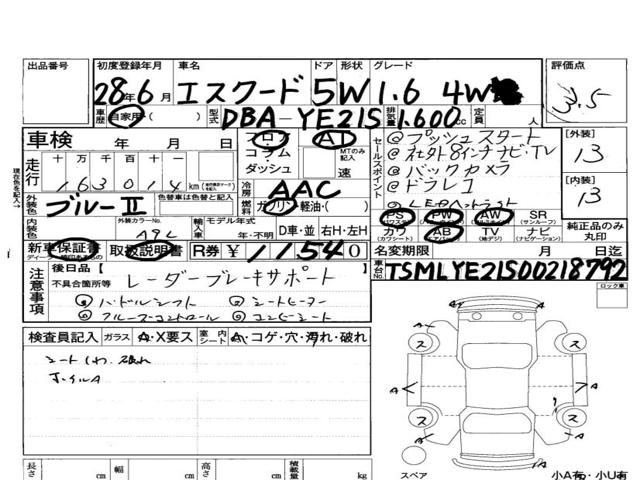 出品番号 初度登録年月 車名 ドア 形状 グレード 評価点
28年6月 エスクード 5W 1.6 4W
3.5
車歴 自家用( ) 型式 DBA-YE21S 排気量 1.600cc 定員 人
車検 年 月 日 フロア AT
走行 十万千百十 km
163014
コラム
ダッシュ
MTのみ記入
速
セールスポイント
@プッシュスタート
@社外8インチナビ・TV
@バックカメラ
@ドラレコ
@LEDヘッドライト
【外装】
13
【内装】
13
現在色を記入→
外装色 ブルーⅡ 色替車は色替と記入
冷房 AAC
燃料 ガソリン・軽油・( )
内装色 外装カラーNo. 輸入車 モデル年式 年・不明 D車・並 右H・左H
PS PW AW SR
(パワステ) (サンルーフ)
カワ AB TV ナビ
(カワシート) (エアバッグ) (地デジ) (ナビゲーション)
純正品のみ丸印
新車保証書 取扱説明書 R券 ¥11540
名変期限 月 日
車台No. TSMLYE21S00218792
注意事項
後日品
不具合箇所等
レーダーブレーキサポート
@パドルシフト @シートヒーター
@クルーズコントロール @コンビシート
ロック車
検査員記入 ガラス A・X要ス 室内シート A・コゲ・穴・汚れ・破れ
シートしわ 破れ
ホイルA
A
ス ス
A A
ス ス
A
スペア
長さ cm 幅 cm 高さ cm 積載量 kg
小A有・小U有